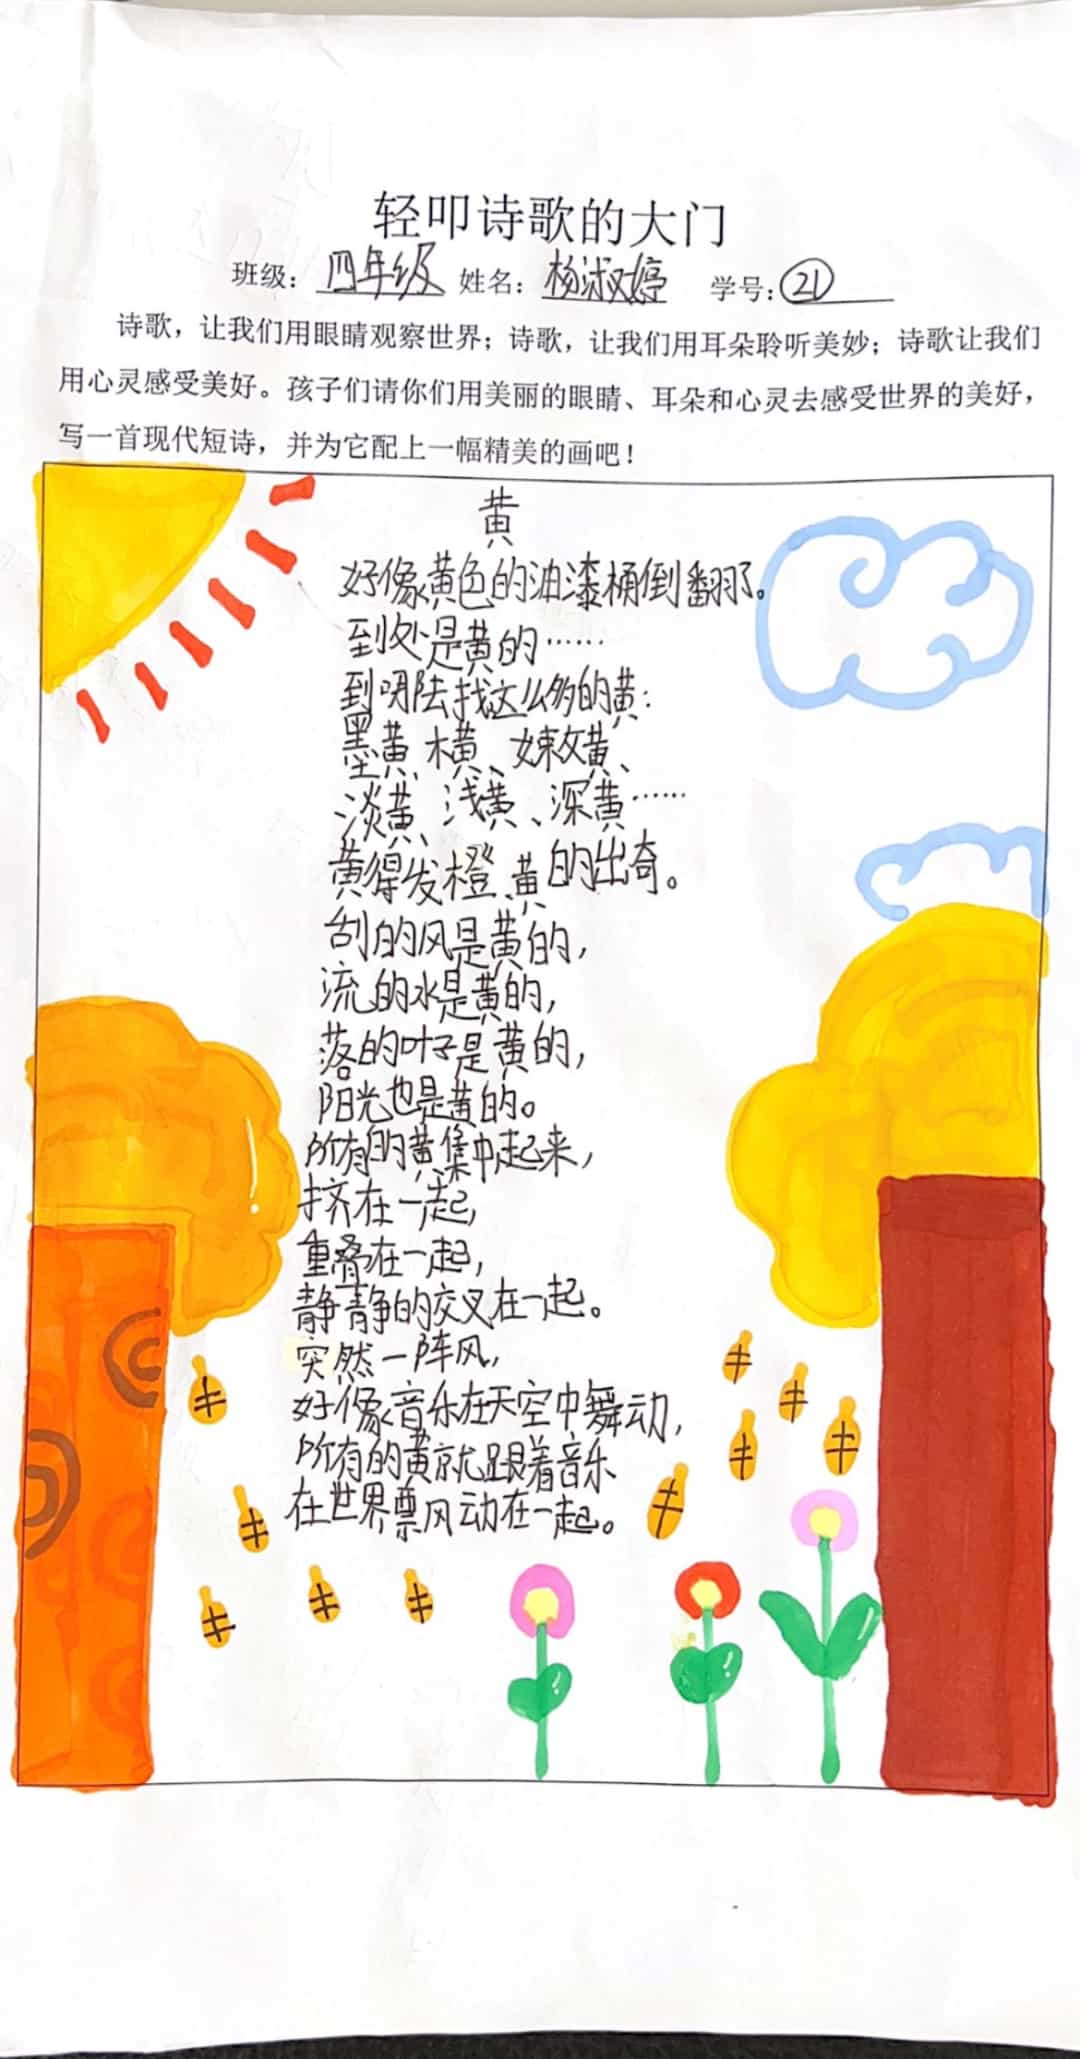 轻叩诗歌的大门
班级：四年级 姓名：杨淑婷 学号：21
诗歌，让我们用眼睛观察世界；诗歌，让我们用耳朵聆听美妙；诗歌让我们
用心灵感受美好。孩子们请你们用美丽的眼睛、耳朵和心灵去感受世界的美好，
写一首现代短诗，并为它配上一幅精美的画吧！
黄
好像黄色的油漆桶倒翻了。
到处是黄的……
到哪去找这么多的黄：
墨黄、横、嫩黄、
淡黄、浅黄、深黄……
黄得发橙、黄的出奇。
刮的风是黄的，
流的水是黄的，
落的叶子是黄的，
阳光也是黄的。
所有的黄集中起来，
挤在一起，
重叠在一起，
静静的交叉在一起。
突然一阵风，
好像音乐在天空中舞动，
所有的黄就跟着音乐
在世界飘动在一起。